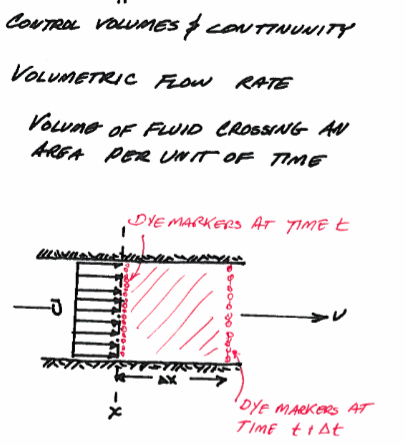 CONTROL VOLUMES & CONTINUNITY
VOLUMETRIC FLOW RATE
VOLUME OF FLUID CROSSING AN
AREA PER UNIT OF TIME
DYE MARKERS AT TIME t
U
U
Δx
x
DYE MARKERS AT
TIME t + Δt